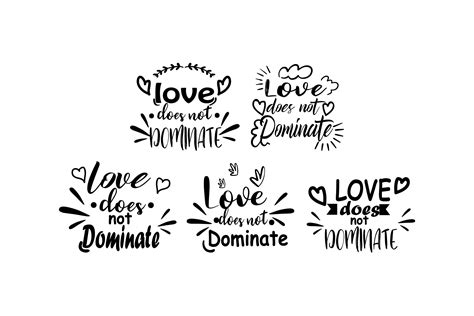 love
does not
DOMINATE
Love
does not
Dominate
Love
does
not
Dominate
Love
does not
Dominate
LOVE
does
not
DOMINATE